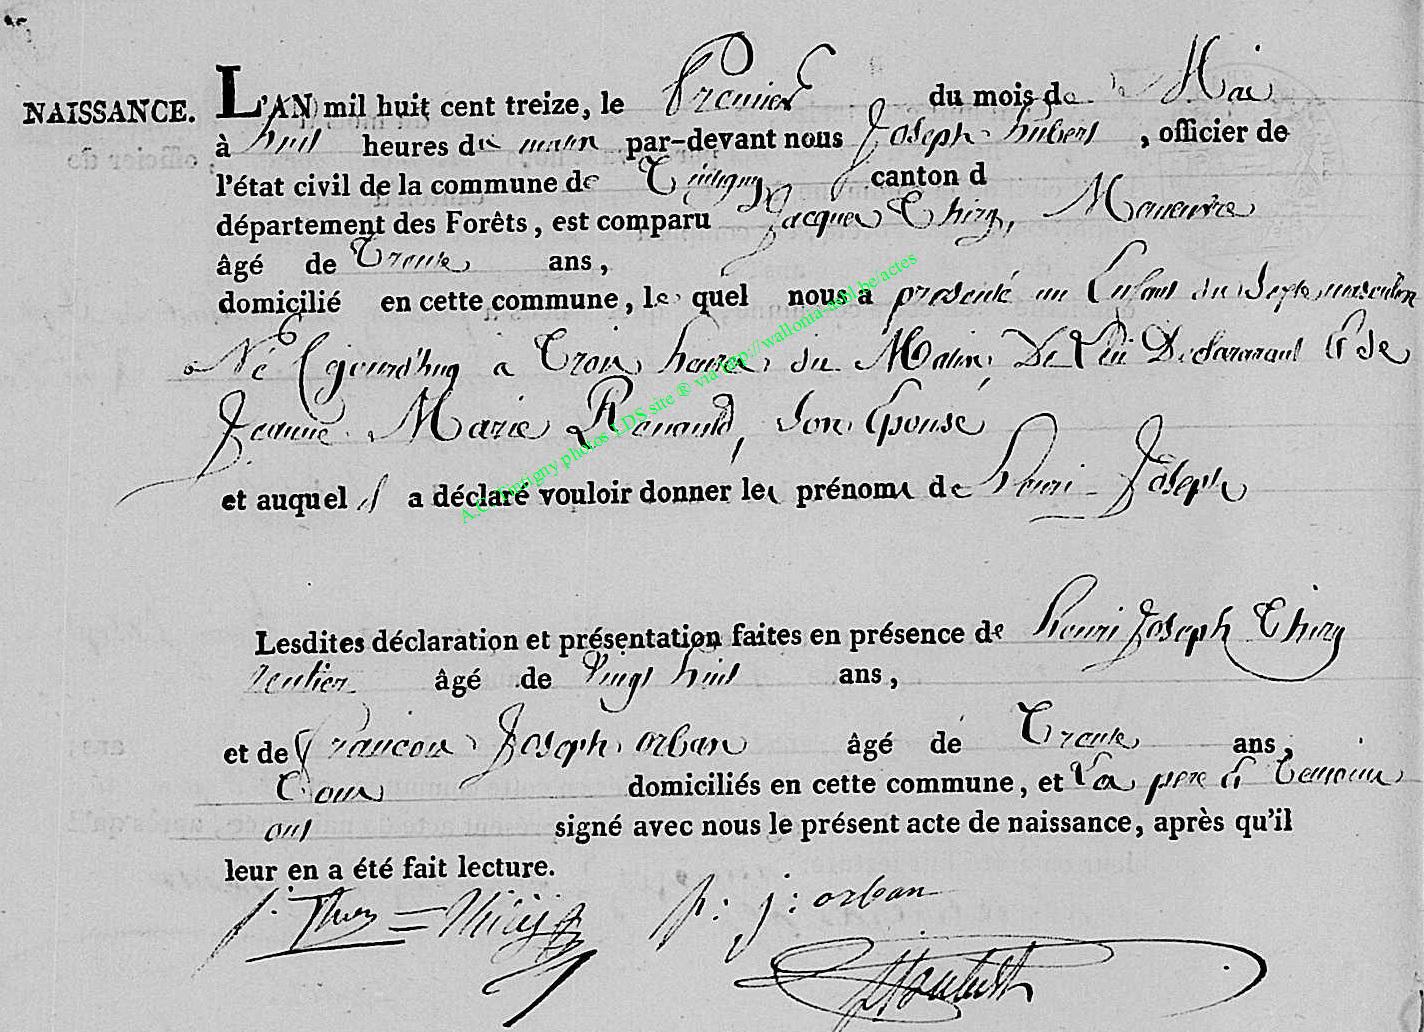 NAISSANCE. L'AN mil huit cent treize, le Premier du mois de Mai
à huit heures du matin par-devant nous Joseph hubert, officier de
l'état civil de la commune de Tintigny canton d
département des Forêts, est comparu Jacques Thiry, Maneuvre
âgé de Trente ans,
domicilié en cette commune, le quel nous a presenté un Enfant du Sexe masculin
Né Cejourd'huy a Trois heures du Matin, De Lui Declarant & de
Jeanne Marie Renauld, Son Epouse
et auquel il a déclaré vouloir donner les prénoms de Henri Joseph
Lesdites déclaration et présentation faites en présence de Henri Joseph Thiry
rentier âgé de Vingt huit ans,
et de François Joseph orban âgé de Trente ans,
Tous domiciliés en cette commune, et Les pere & Temoins
ont signé avec nous le présent acte de naissance, après qu'il
leur en a été fait lecture.
j. Thiry = Thiry f: j: orban
A.C. Tintigny photos LDS site ® via http://wallonia-asbl.be/actes